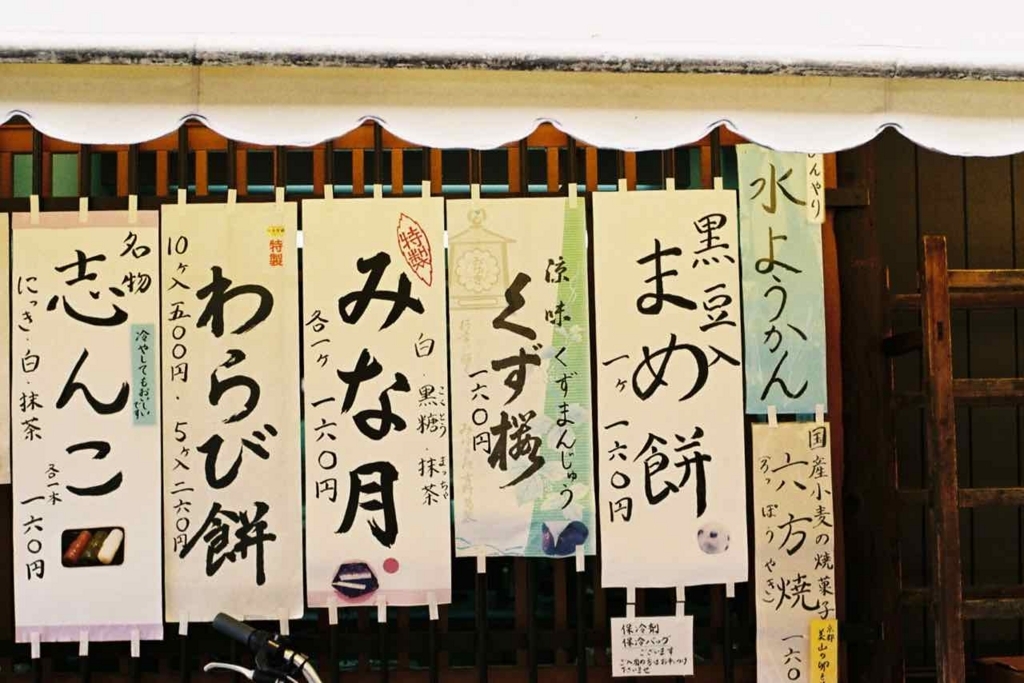 ひんやり
水ようかん
国産小麦の焼菓子
六方焼
ろっぽうやき
一六〇
京都
美山の卵
黒豆入
まめ餅
一ヶ 一六〇円
保冷剤
保冷バッグ
ございます
涼味 くずまんじゅう
くず桜
一六〇円
特製
みな月
白・黒糖・抹茶
こくとう
まっちゃ
各一ヶ 一六〇円
特製
わらび餅
10ヶ入 五〇〇円・5ヶ入 二六〇円
名物
志んこ
冷やしてもおいしい
にっき・白・抹茶
各一本 一六〇円